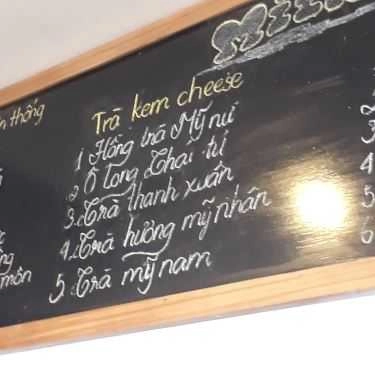 n thống
môn
Trà kem cheese
1 Hồng trà Mỹ nữ
2 Ô long Thai tử
3. Trà thanh xuân
4. Trà hường mỹ nhân
5. Trà mỹ nam
4
5
6